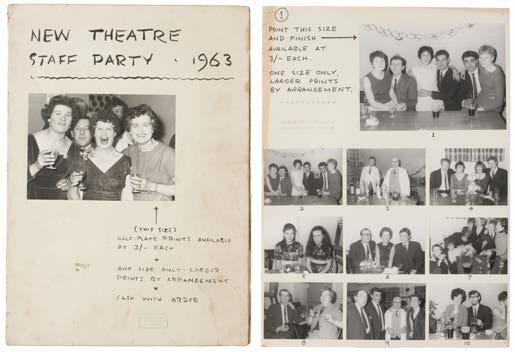 NEW THEATRE
STAFF PARTY · 1963
(THIS SIZE)
HALF-PLATE PRINTS AVAILABLE
AT 3/- EACH
ONE SIZE ONLY - LARGER
PRINTS BY ARRANGEMENT
CASH WITH ORDER
1
PRINT THIS SIZE
AND FINISH
AVAILABLE AT
3/- EACH.
ONE SIZE ONLY,
LARGER PRINTS
BY ARRANGEMENT.
1
2
3
4
5
6
7
8
9
10